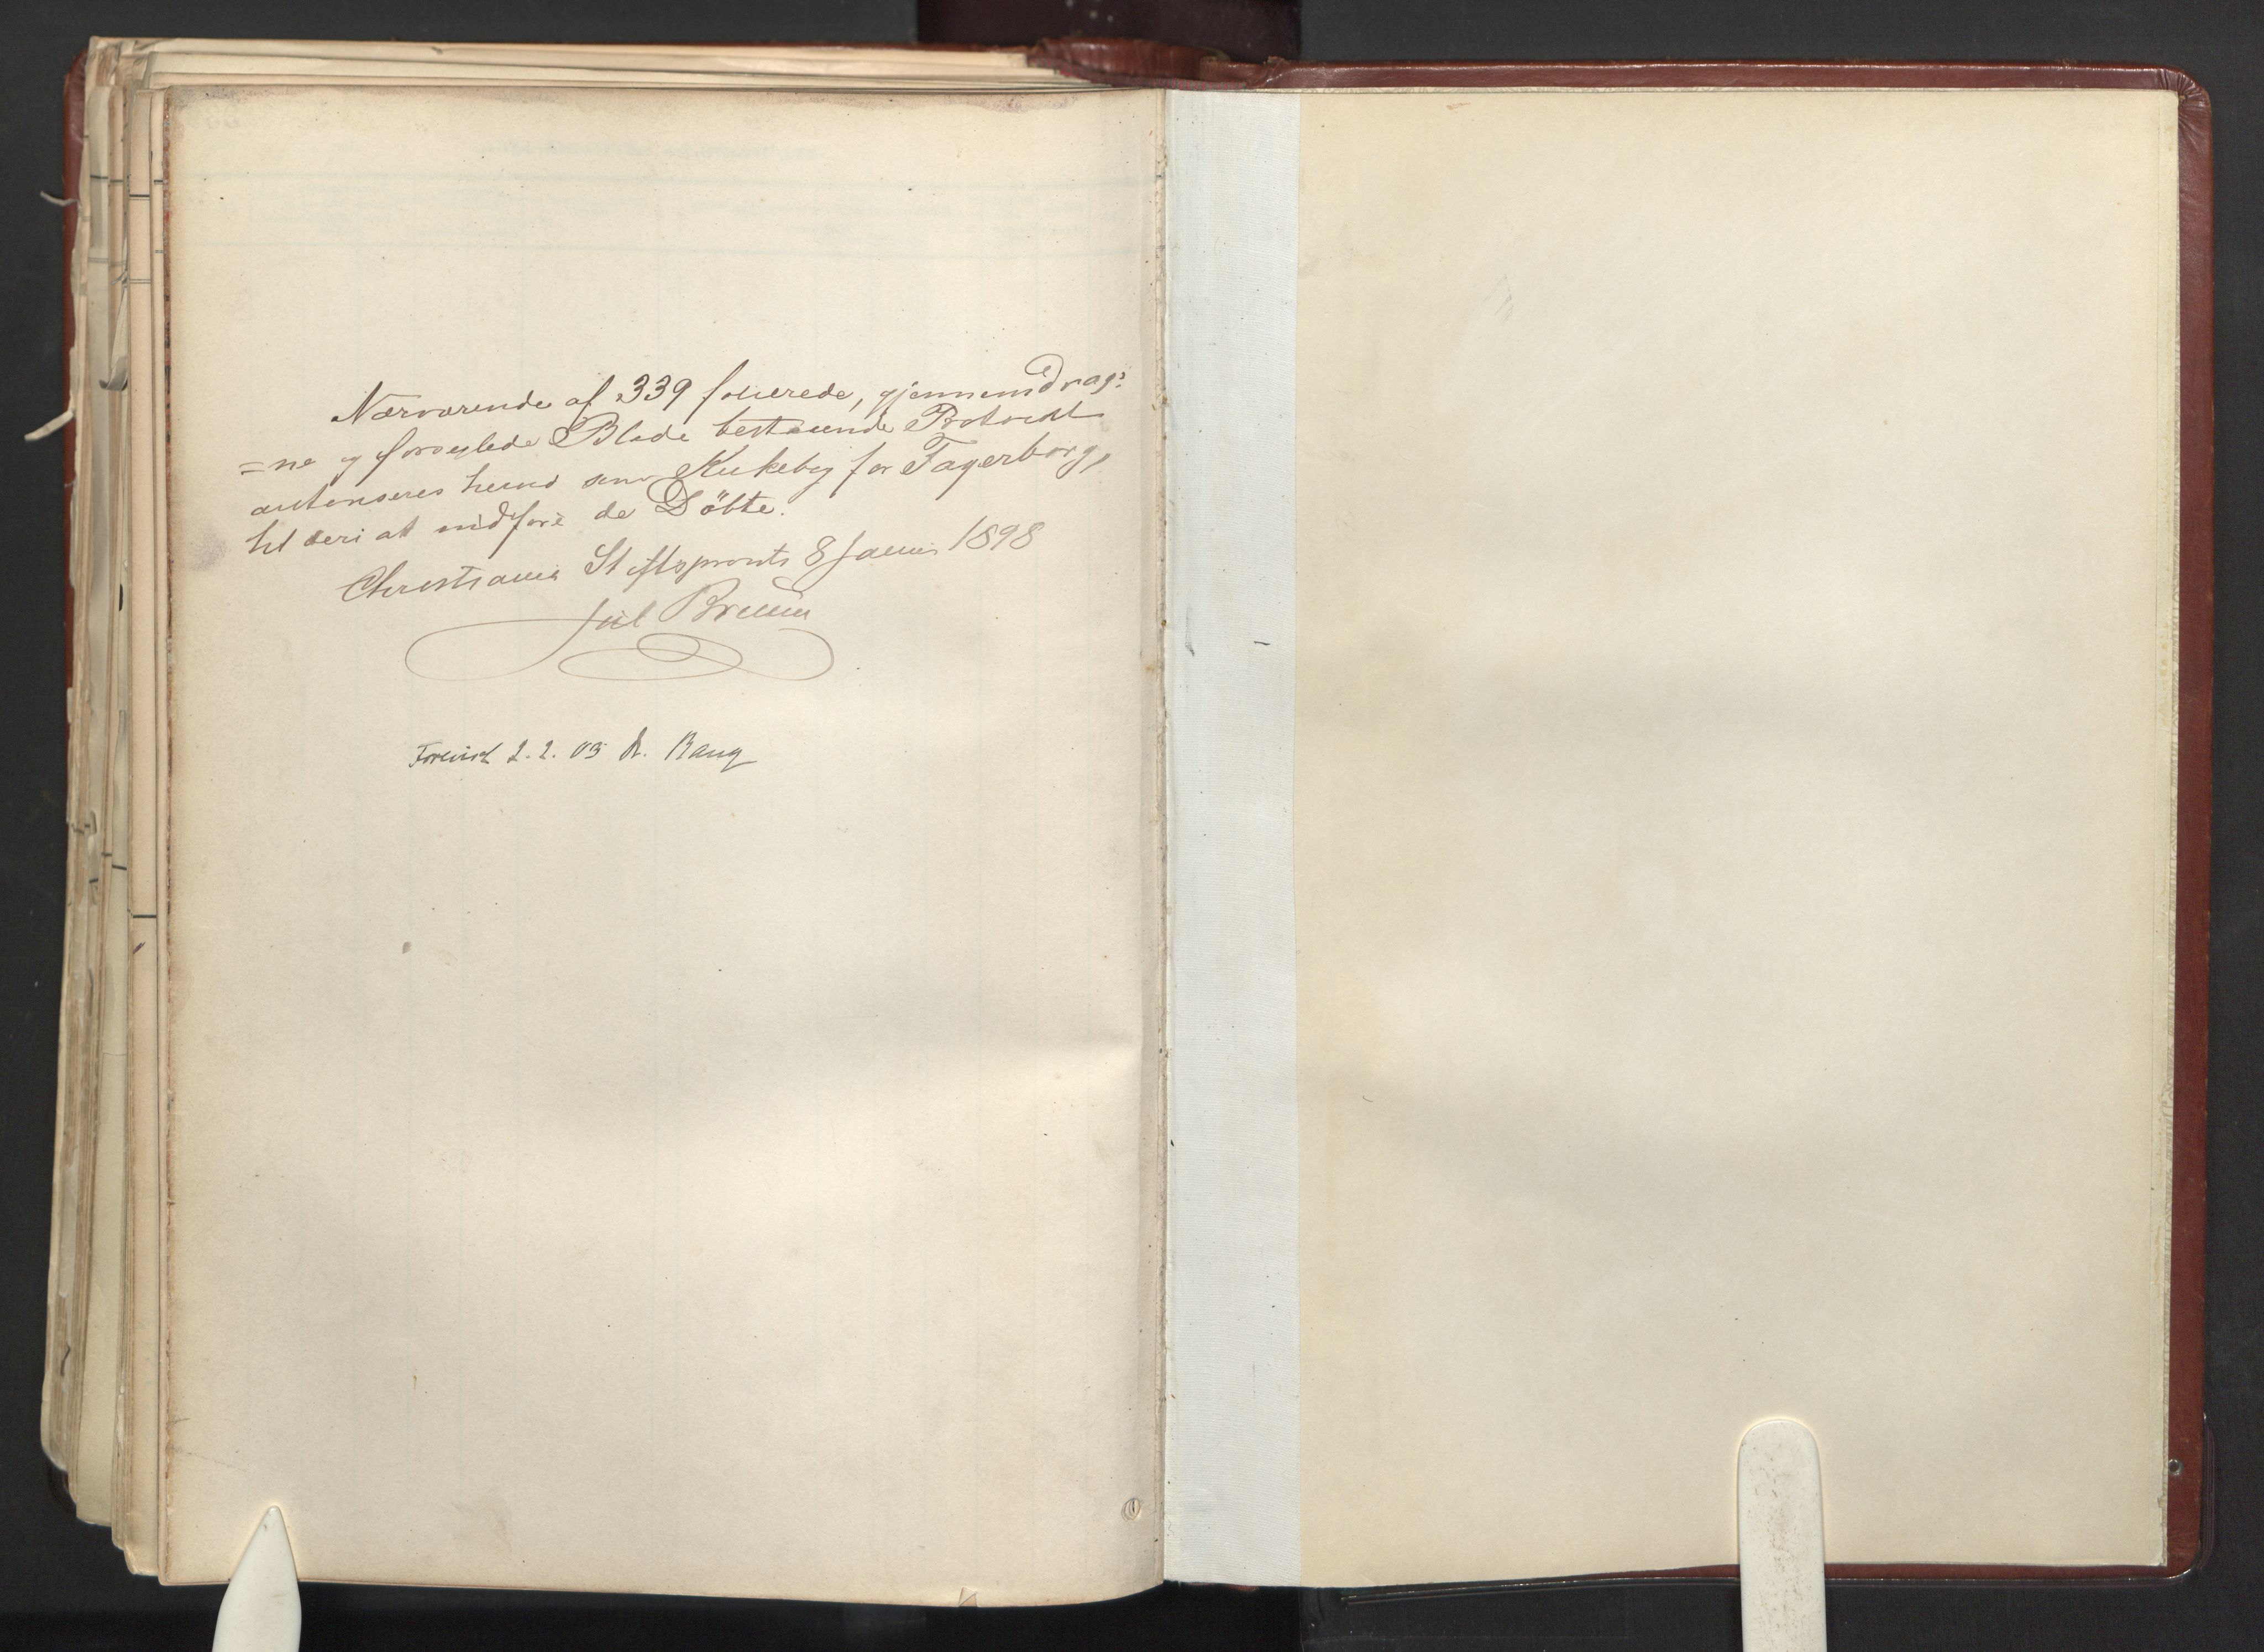 Nærværende af 339 folierede, gjennemdrag=
=ne og forseglede Blade bestaaende Protocol
autoriseres herved som Kirkebog for Fagerborg,
til deri at indføre de Döbte.
Christiania Stiftsprovsti 8 Januar 1898
Jul Bruun
Forevist 2.2.03 A. Bang